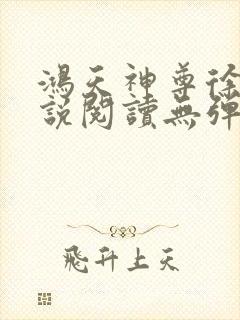 鴻天神尊徐
說閱讀無彈
飛升上天